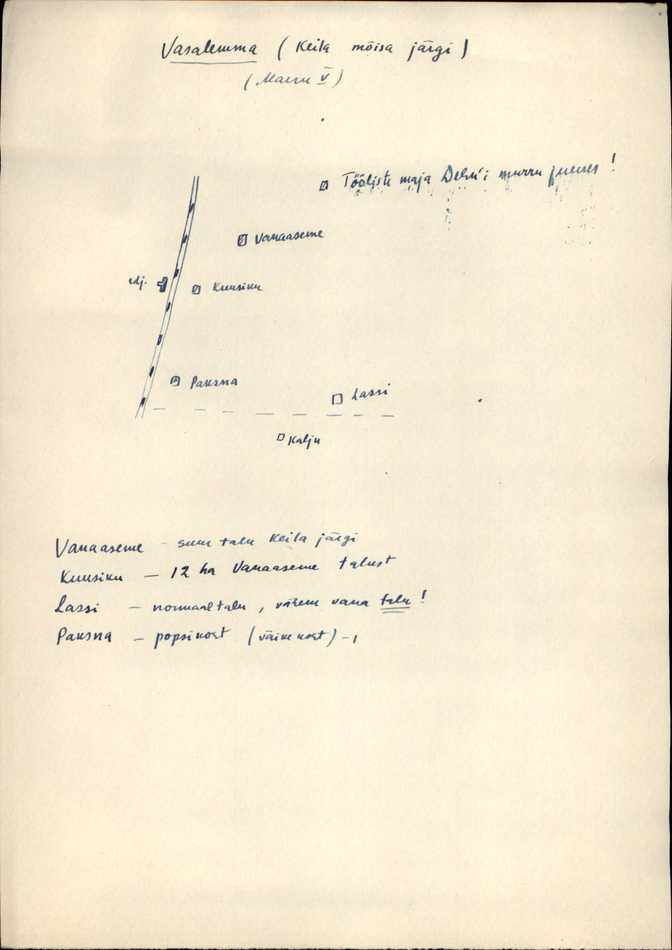 Vasalemma (Keila mõisa järgi)
(Maeru V)
Tööliste maja Dehn'i murru juures!
Vanaaseme
rdj.
Kuusiku
Paksna
Lassi
Kalju
Vanaaseme - suur talu Keila järgi
Kuusiku - 12 ha Vanaaseme talust
Lassi - normaaltalu, väsem vana talu!
Paksna - popsikoht (väike koht) -,